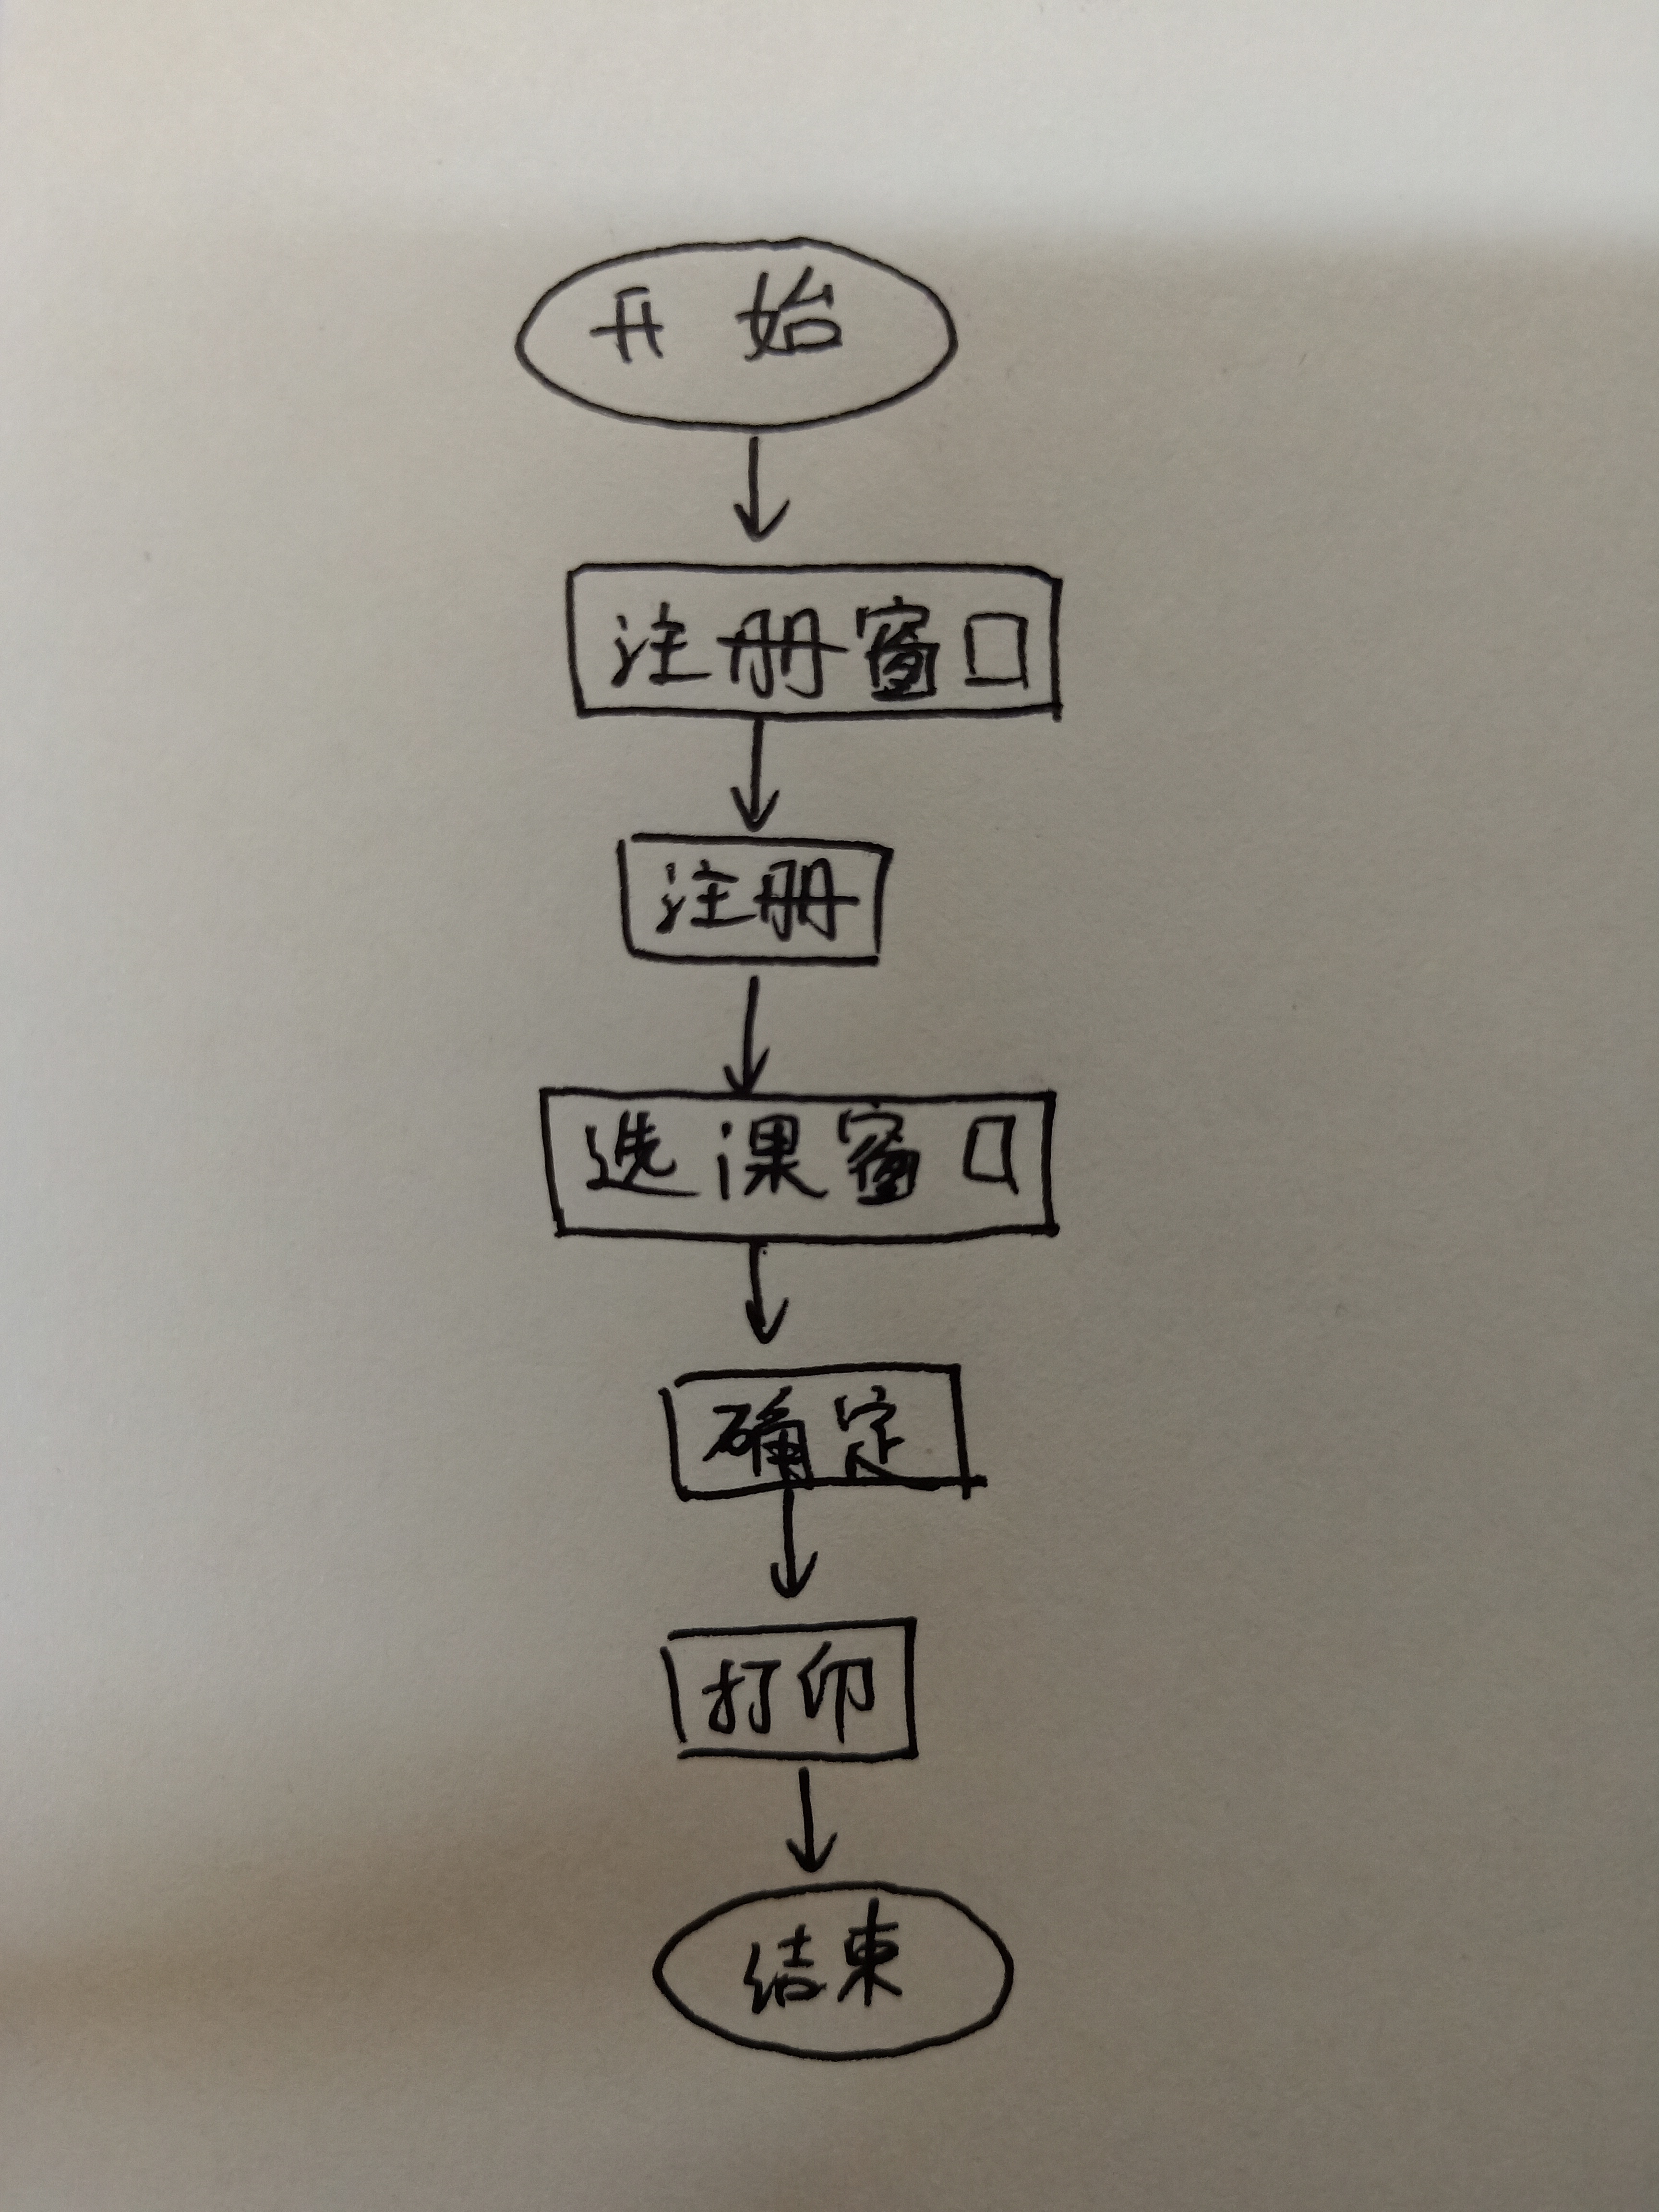 开始
注册窗口
注册
选课窗口
确定
打印
结束